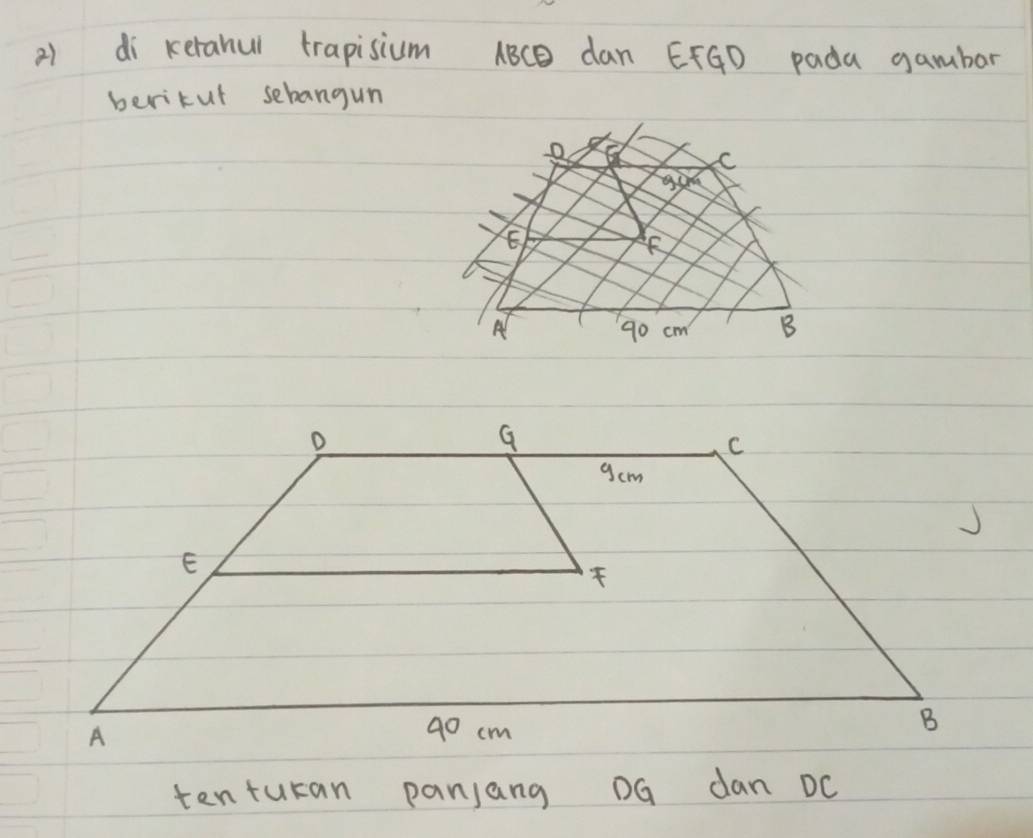 2) di ketahui trapisium ABCD dan EFGD pada gambar
berikut sebangun
D G C
9cm
E F
A 90 cm B
D G C
9cm
E F
A 90 cm B
tentukan panjang DG dan DC